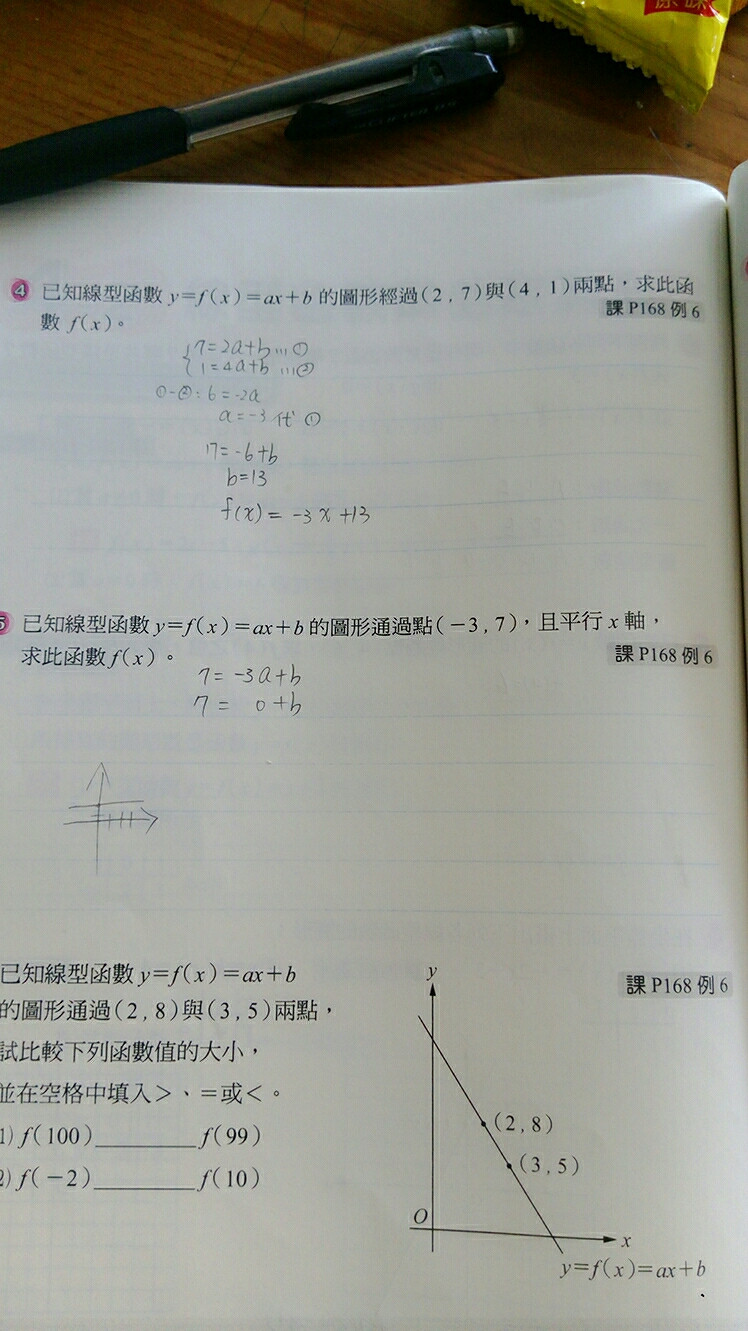 原味
4 已知線型函數 y=f(x)=ax+b 的圖形經過(2,7)與(4,1)兩點,求此函
數 f(x)。 課 P168 例 6
7=2a+b…①
1=4a+b…②
①-②:6=-2a
a=-3 代 ①
7=-6+b
b=13
f(x)=-3x+13
5 已知線型函數 y=f(x)=ax+b 的圖形通過點(-3,7),且平行 x 軸,
求此函數 f(x)。 課 P168 例 6
7=-3a+b
7= 0+b
已知線型函數 y=f(x)=ax+b 課 P168 例 6
的圖形通過(2,8)與(3,5)兩點,
試比較下列函數值的大小,
並在空格中填入>、=或<。
1) f(100)________f(99)
2) f(-2)________f(10)
y
(2,8)
(3,5)
O
x
y=f(x)=ax+b